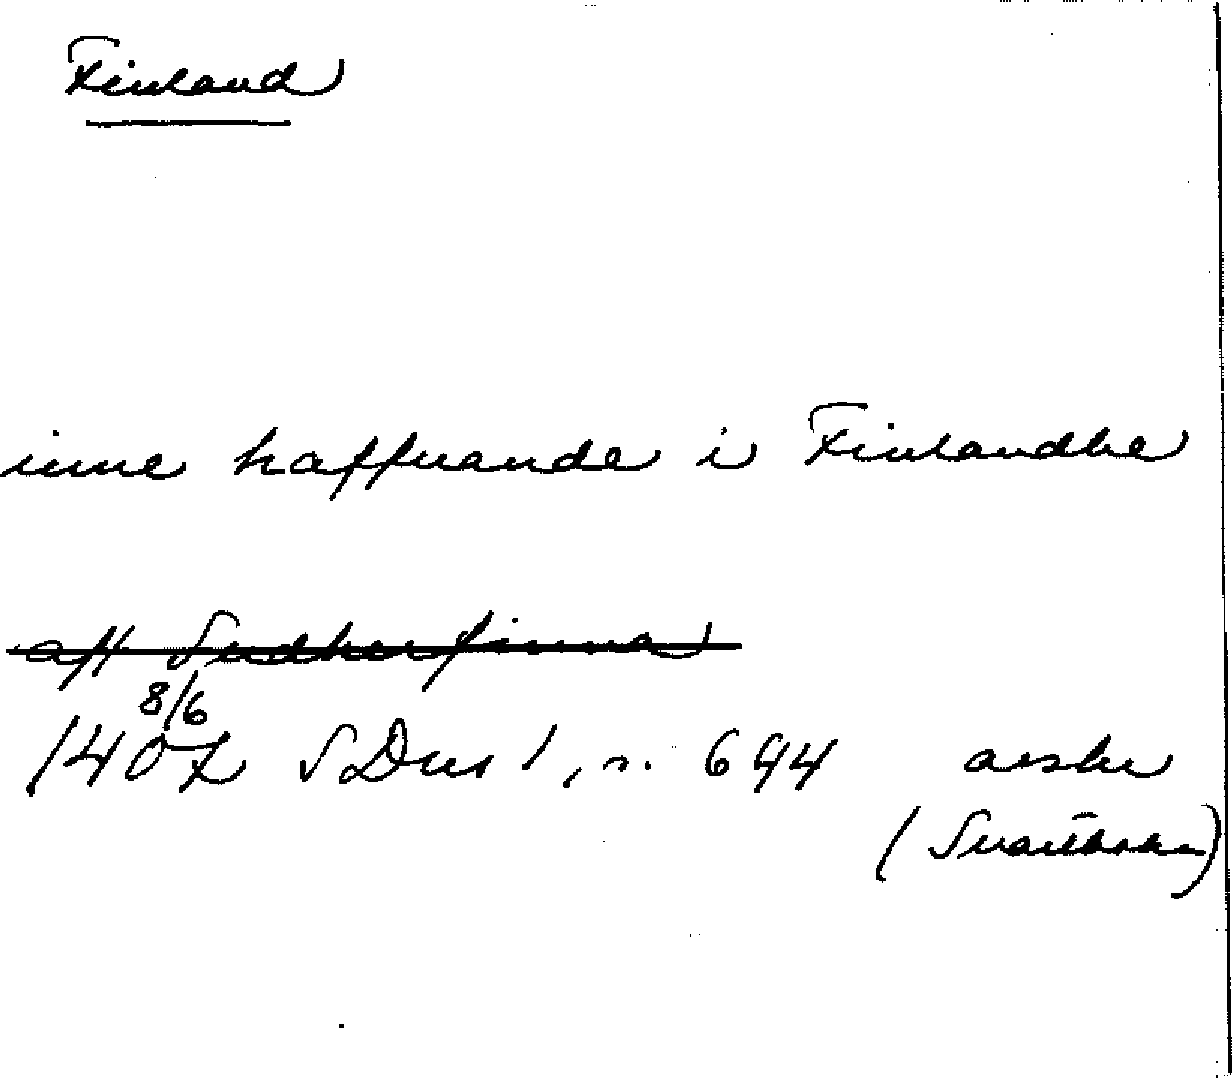 Finland
inne haffuande i Finlandhe
aff Sudherfinna
8/6
1407 SDns 1, s. 694 avskr
(Svartboken)